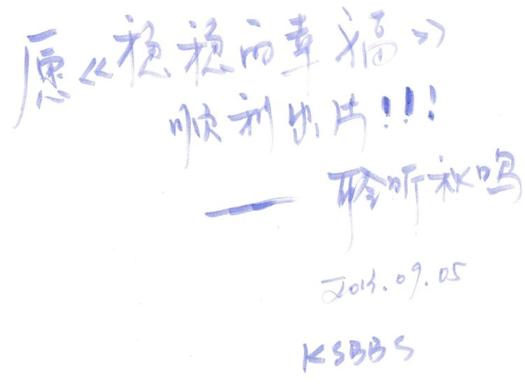 愿《稳稳的幸福》
顺利出片!!!
— 聆听秋鸣
09.05
KSBBS